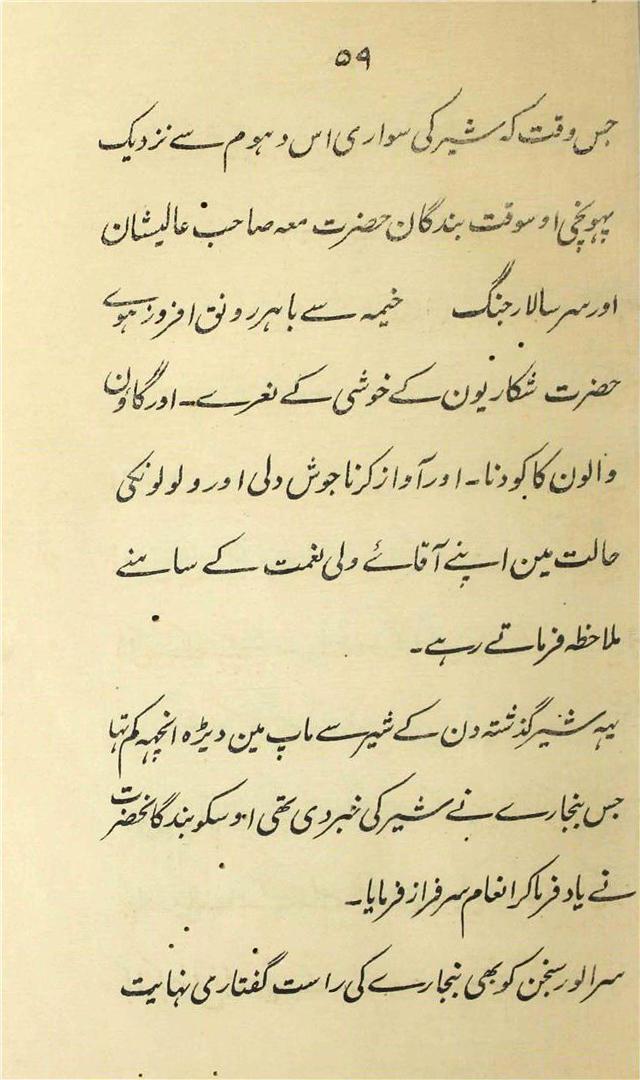 ۵۹
جس وقت کہ شیر کی سواری اس دہوم سے نزدیک
پہونچی اوسوقت بندگان حضرت معہ صاحب عالیشان
اور سر سالار جنگ خیمہ سے باہر رونق افروز ہوے
حضرت شکاریون کے خوشی کے نعرے۔ اور گاون
والون کا کودنا۔ اور آواز کرنا جوش دلی اور ولولونکی
حالت مین اپنے آقائے ولی نعمت کے سامنے
ملاحظہ فرماتے رہے۔
یہہ شیر گذشتہ دن کے شیر سے ماپ مین دیڑہ انچہہ کم تہا
جس بنجارے نے شیر کی خبر دی تھی اوسکو بندگانحضرت
نے یاد فرما کر انعام سرفراز فرمایا۔
سر الور سنجن کو بھی بنجارے کی راست گفتاری نہایت